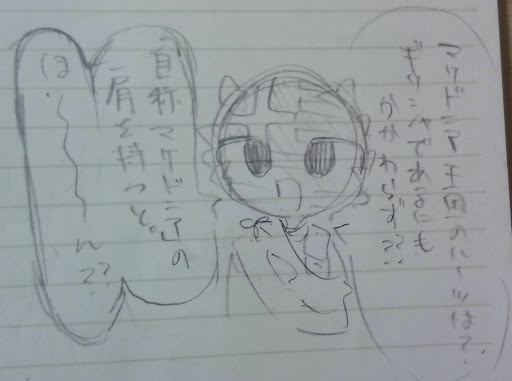 マケドニア王国のルーツは?
ギリシャであるにも
かかわらず??
自称マケドニアの
肩を持つと。
ほ〜〜ん??